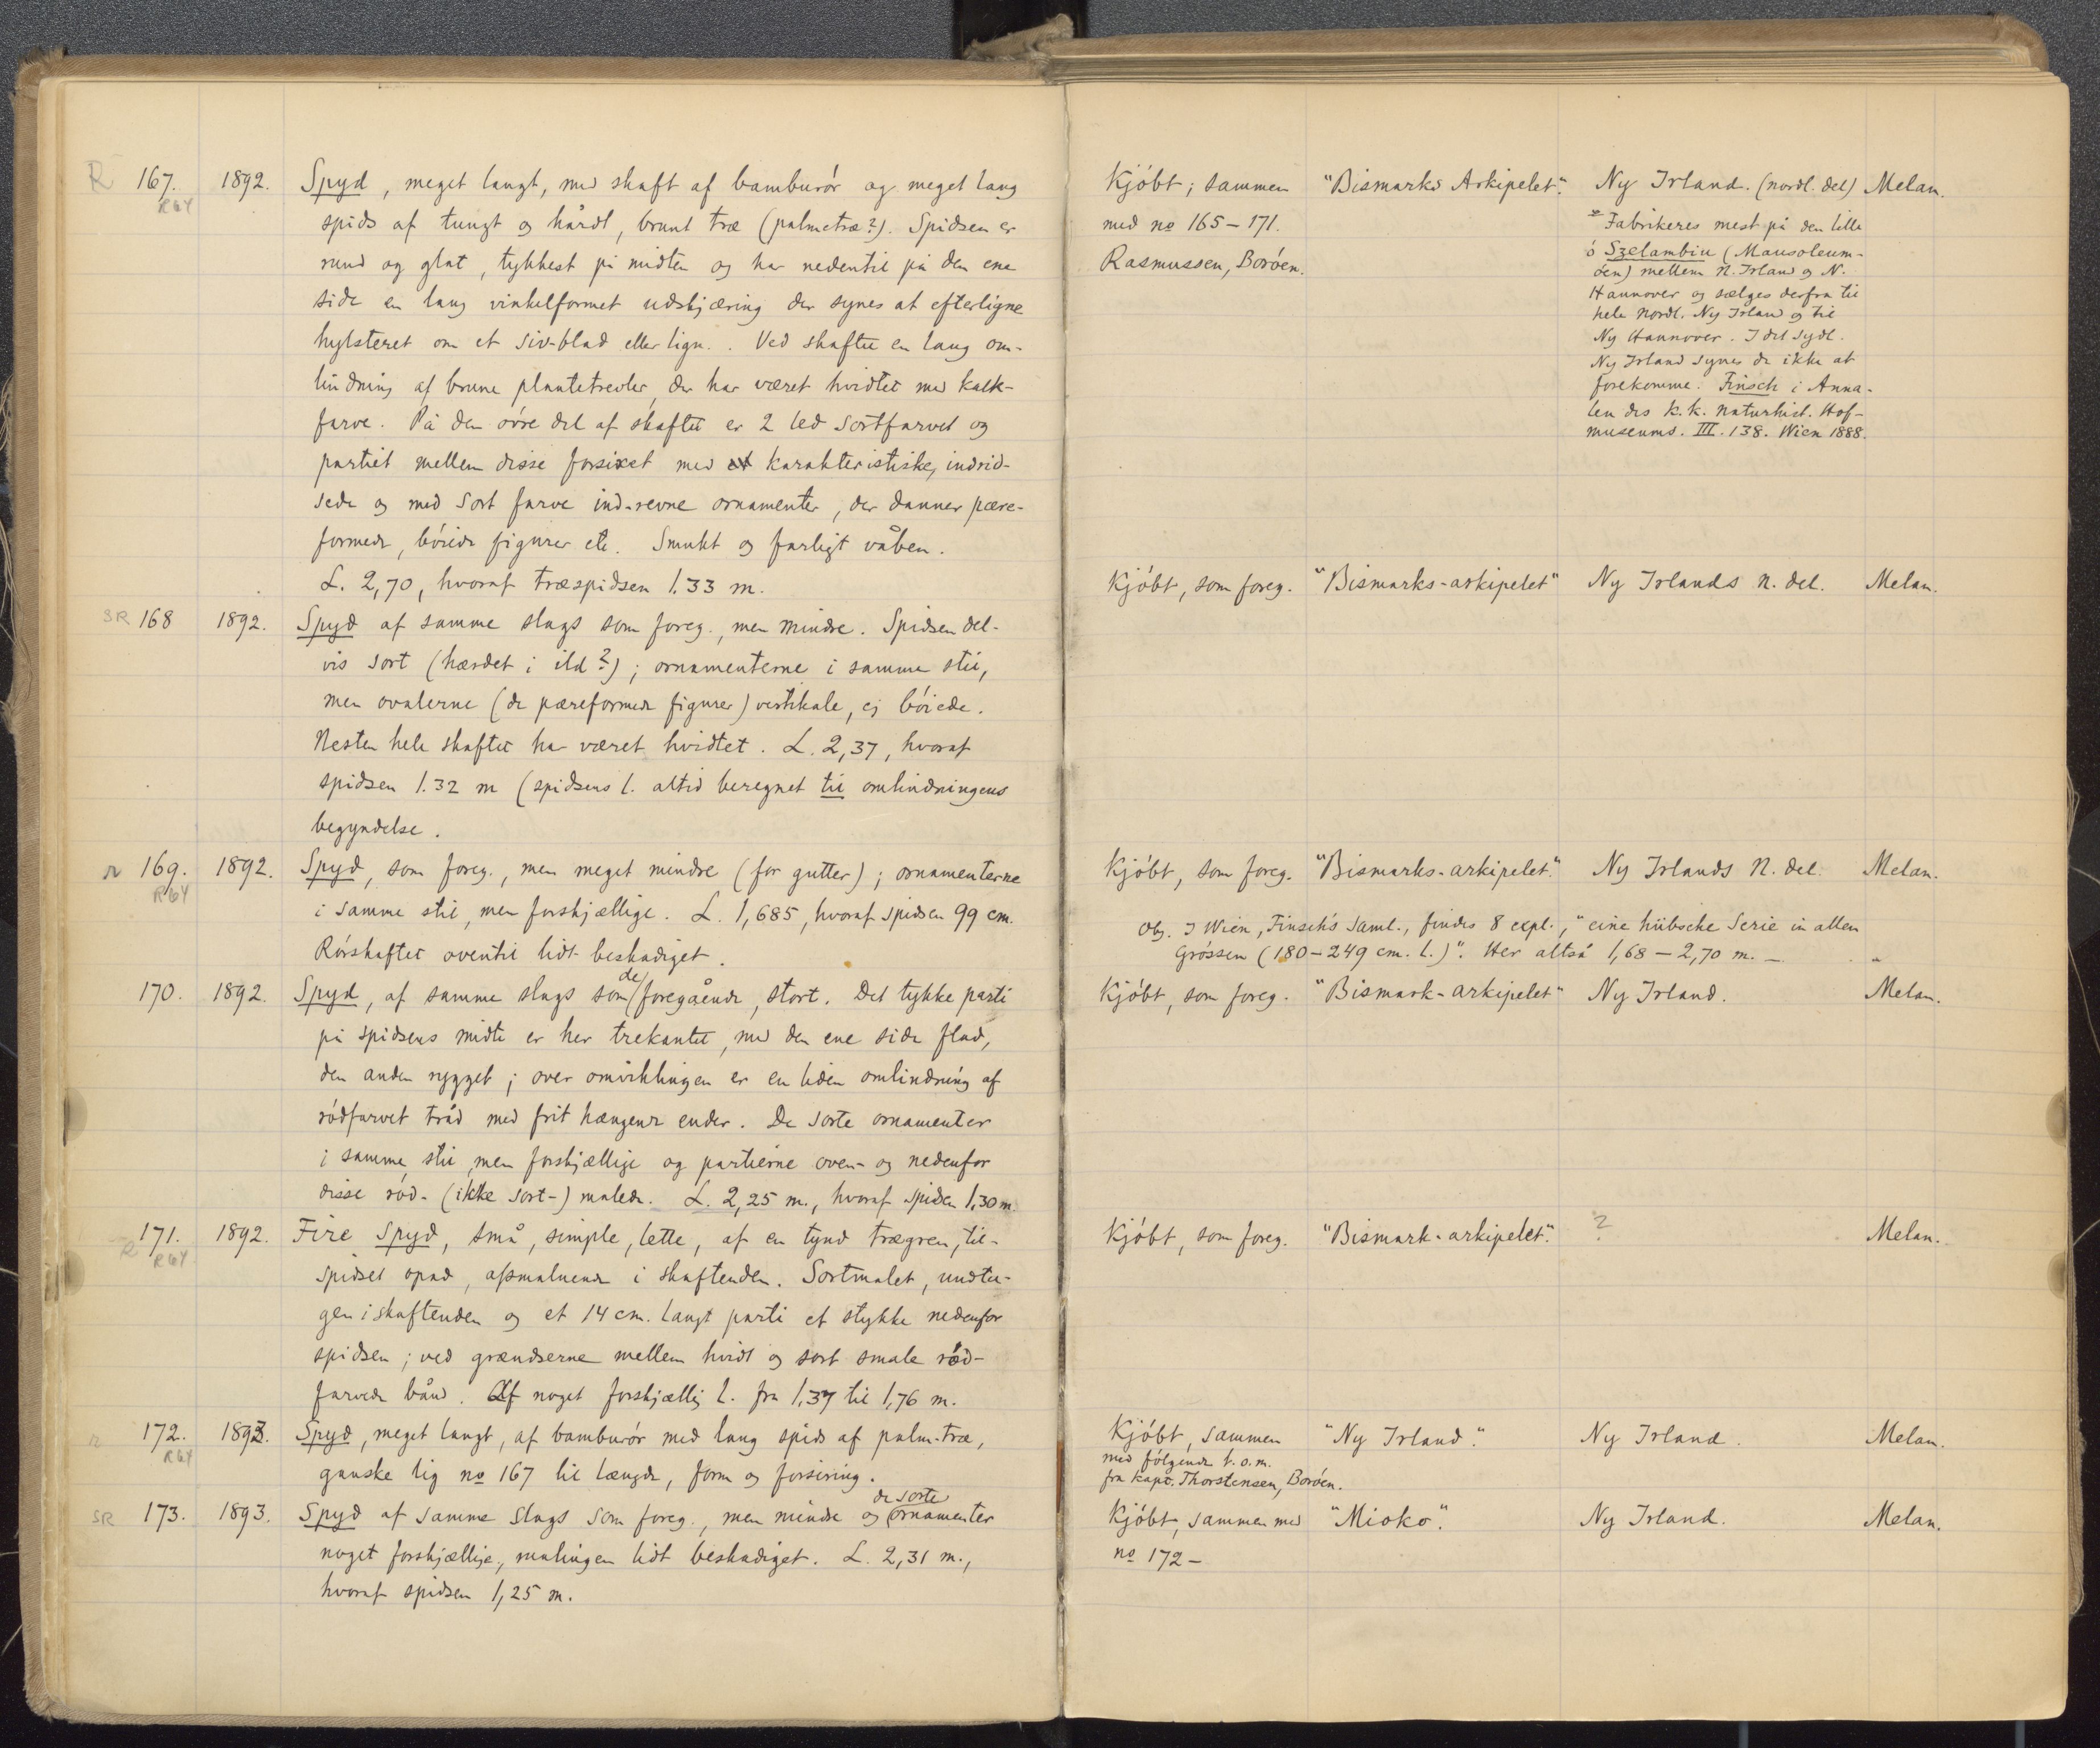 R 167. 1892. Spyd, meget langt, med skaft af bamburór og meget lang
R64 spids af tungt og hårdt, brunt træ (palmetræ?). Spidsen er
rund og glat, tykkest på midten og har nedentil på den ene
side en lang vinkelformet udskjæring der synes at efterligne
hylsteret om et siv-blad eller lign.. Ved skaftet en lang om-
lindning af brune plantetrevler, der har været hvidtet med kalk-
farve. På den óvre del af skaftet er 2 led sortfarvet og
partiet mellem disse forsiret med karakteristiske, indrid-
sede og med sort farve ind-revne ornamenter, der danner pære-
formede, bóiede figurer etc. Smukt og farligt våben.
L. 2,70, hvoraf træspidsen 1.33 m.
SR 168 1892. Spyd af samme slags som foreg., men mindre. Spidsen del-
vis sort (hærdet i ild?); ornamenterne i samme stil,
men ovalerne (de pæreformede figurer) vertikale, ej bóiede.
Nesten hele skaftet har været hvidtet. L. 2,37, hvoraf
spidsen 1.32 m (spidsens l. altid beregnet til omlindningens
begyndelse.
r 169. 1892. Spyd, som foreg., men meget mindre (for gutter); ornamenterne
R64 i samme stil, men forskjællige. L. 1,685, hvoraf spidsen 99 cm.
Rórskaftet oventil lidt beskadiget.
170. 1892. Spyd, af samme slags som de foregående, stort. Det tykke parti
på spidsens midte er her trekantet, med den ene side flad,
den anden rygget; over omviklingen er en liden omlindning af
ródfarvet tråd med frit hængende ender. De sorte ornamenter
i samme stil, men forskjællige og partierne oven- og nedenfor
disse ród- (ikke sort-) malede. L. 2,25 m., hvoraf spidsen 1,30 m.
R 171. 1892. Fire Spyd, små, simple, lette, af en tynd trægren, til-
R64 spidset opad, afsmalnende i skaftenden. Sortmalet, undta-
gen i skaftenden og et 14 cm. langt parti et stykke nedenfor
spidsen; ved grændserne mellem hvidt og sort smale rød-
farvede bånd. Af noget forskjællig l. fra 1,37 til 1,76 m.
r 172. 1893. Spyd, meget langt, af bamburór med lang spids af palm-træ,
R64 ganske lig no 167 til længde, form og forsiring.
SR 173. 1893. Spyd af samme slags som foreg., men mindre og de sorte ornamenter
noget forskjællige, malingen lidt beskadiget. L. 2,31 m.,
hvoraf spidsen 1,25 m.
Kjóbt; sammen "Bismarks Arkipelet". Ny Irland. (nordl. del) Melan.
med no 165-171.
Rasmussen, Boróen.
Fabrikeres mest på den lille
ó Szelambiu (Mausoleum-
óen) mellem N. Irland og N.
Hannover og sælges derfra til
hele nordl. Ny Irland og til
Ny Hannover. I det sydl.
Ny Irland synes de ikke at
forekomme. Finsch i Anna-
len des k. k. naturhist. Hof-
museums. III. 138. Wien 1888.
Kjóbt, som foreg. "Bismarks-arkipelet" Ny Irlands n. del. Melan.
Kjóbt, som foreg. "Bismarks-arkipelet." Ny Irlands N. del. Melan.
Obs. I Wien, Finsch's Saml., findes 8 expl., "eine hübsche Serie in allen
Grössen (180-249 cm. l.)". Her altså 1,68 - 2,70 m. -
Kjóbt, som foreg. "Bismark-arkipelet" Ny Irland. Melan.
Kjóbt, som foreg. "Bismark-arkipelet". ? Melan.
Kjóbt, sammen "Ny Irland". Ny Irland. Melan.
med fólgende t. o. m.
fra kapt. Thorstensen, Boróen.
Kjóbt, sammen med "Mioko". Ny Irland. Melan.
no 172-